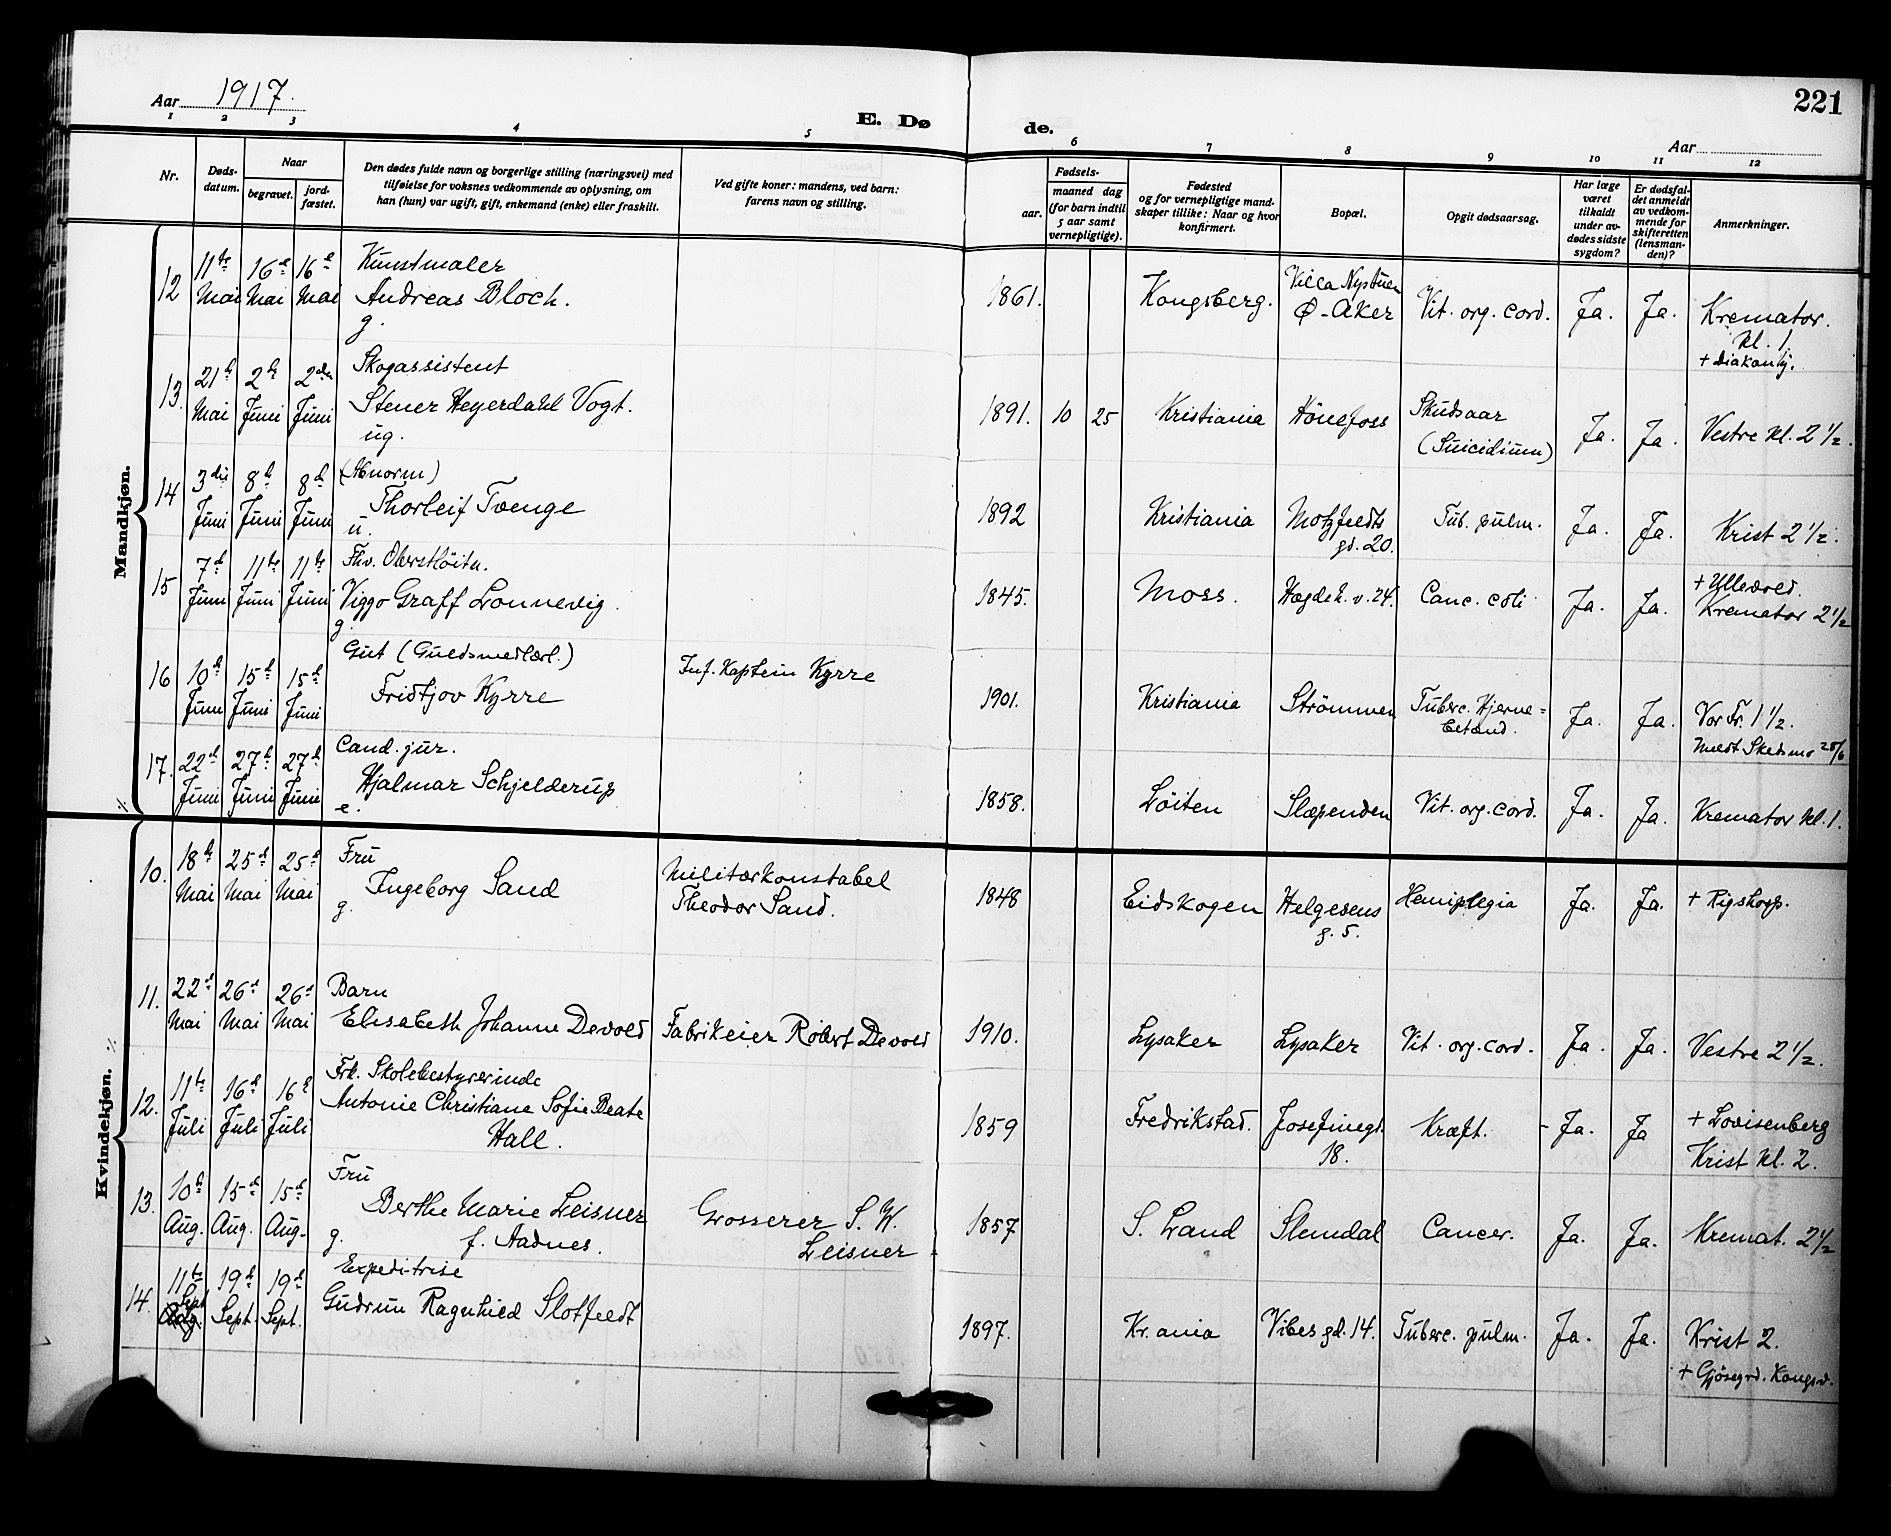 Aar 1917.
E. Døde.
221
Aar
1 2 3 4 5 6 7 8 9 10 11 12
Nr.
Døds-
datum.
Naar
begravet.
jord-
fæstet.
Den dødes fulde navn og borgerlige stilling (næringsvei) med
tilføielse for voksnes vedkommende av oplysning, om
han (hun) var ugift, gift, enkemand (enke) eller fraskilt.
Ved gifte koner: mandens, ved barn:
farens navn og stilling.
Fødsels-
aar.
maaned dag
(for barn indtil
5 aar samt
vernepligtige).
Fødested
og for vernepligtige mand-
skaper tillike: Naar og hvor
konfirmert.
Bopæl.
Opgit dødsaarsag.
Har læge
været
tilkaldt
under av-
dødes sidste
sygdom?
Er dødsfal-
det anmeldt
av vedkom-
mende for
skifteretten
(lensman-
den)?
Anmerkninger.
Mandkjøn.
12 11te Mai 16de Mai 16de Mai
Kunstmaler
Andreas Bloch.
g.
1861. Kongsberg.
Villa Nystuen
Ø-Aker
Vit. org. cord. Ja. Ja.
Kremator.
kl. 1
+ Diakonhj.
13. 21de Mai 2den Juni 2den Juni
Skogassistent
Stener Heyerdahl Vogt.
ug.
1891. 10 25 Kristiania Hönefoss
Skudsaar
(Suicidium)
Ja. Ja. Vestre kl. 2 1/2.
14 3die Juni 8de Juni 8de Juni
(Abnorm)
Thorleif Tvenge
u.
1892 Kristiania
Motzfeldts
gd. 20.
Tub. pulm. Ja. Ja. Krist 2 1/2.
15 7de Juni 11te Juni 11te Juni
Fhv. Oberstlöitn.
Viggo Graff Lonnevig.
g.
1845. Moss. Hægdeh. v. 24. Canc. coli Ja. Ja.
+ Ullevold.
Kremator 2 1/2
16 10de Juni 15de Juni 15de Juni
Gut (Guldsmedlærl.)
Fridtjov Kyrre
Inf. Kaptein Kyrre
1901. Kristiania Strömmen
Tuberc. Hjerne=
betænd.
Ja. Ja.
Vor Fr. 1 1/2.
Meldt Skedsmo 25/6
17. 22de Juni 27de Juni 27de Juni
Cand. jur.
Hjalmar Schjelderup
e.
1858. Löiten Slæpenden Vit. org. cord. Ja. Ja. Kremator kl. 1.
Kvindekjøn.
10. 18de Mai 25de Mai 25de Mai
Fru
Ingeborg Sand
g.
Militærkonstabel
Theodor Sand.
1848 Eidskogen
Helgesens
g. 5.
Hemiplegia Ja. Ja. + Rigshosp.
11. 22de Mai 26de Mai 26de Mai
Barn
Elisabeth Johanne Devold
Fabrikeier Robert Devold
1910. Lysaker Lysaker Vit. org. cord. Ja. Ja. Vestre 2 1/2.
12. 11te Juli 16de Juli 16de Juli
Frk. Skolebestyrerinde
Antonie Christiane Sofie Beate
Hall.
1859 Fredrikstad.
Josefinegd.
18.
Kræft. - Ja. Ja
+ Lovisenberg
Krist kl. 2.
13. 10de Aug. 15de Aug. 15de Aug.
Fru
Berthe Marie Leisner
g. f. Aadnes.
Grosserer S. W.
Leisner
1857 S. Land Slemdal Cancer. Ja. Ja. Kremat. 2 1/2
14. 11te Sept Aug. 19de Sept. 19de Sept.
Expeditrise
Gudrun Ragnhild Slotfeldt
1897. Kr.ania Vibes gd. 14. Tuberc. pulm. Ja. Ja.
Krist 2.
+ Gjösegrd. Kongsv.